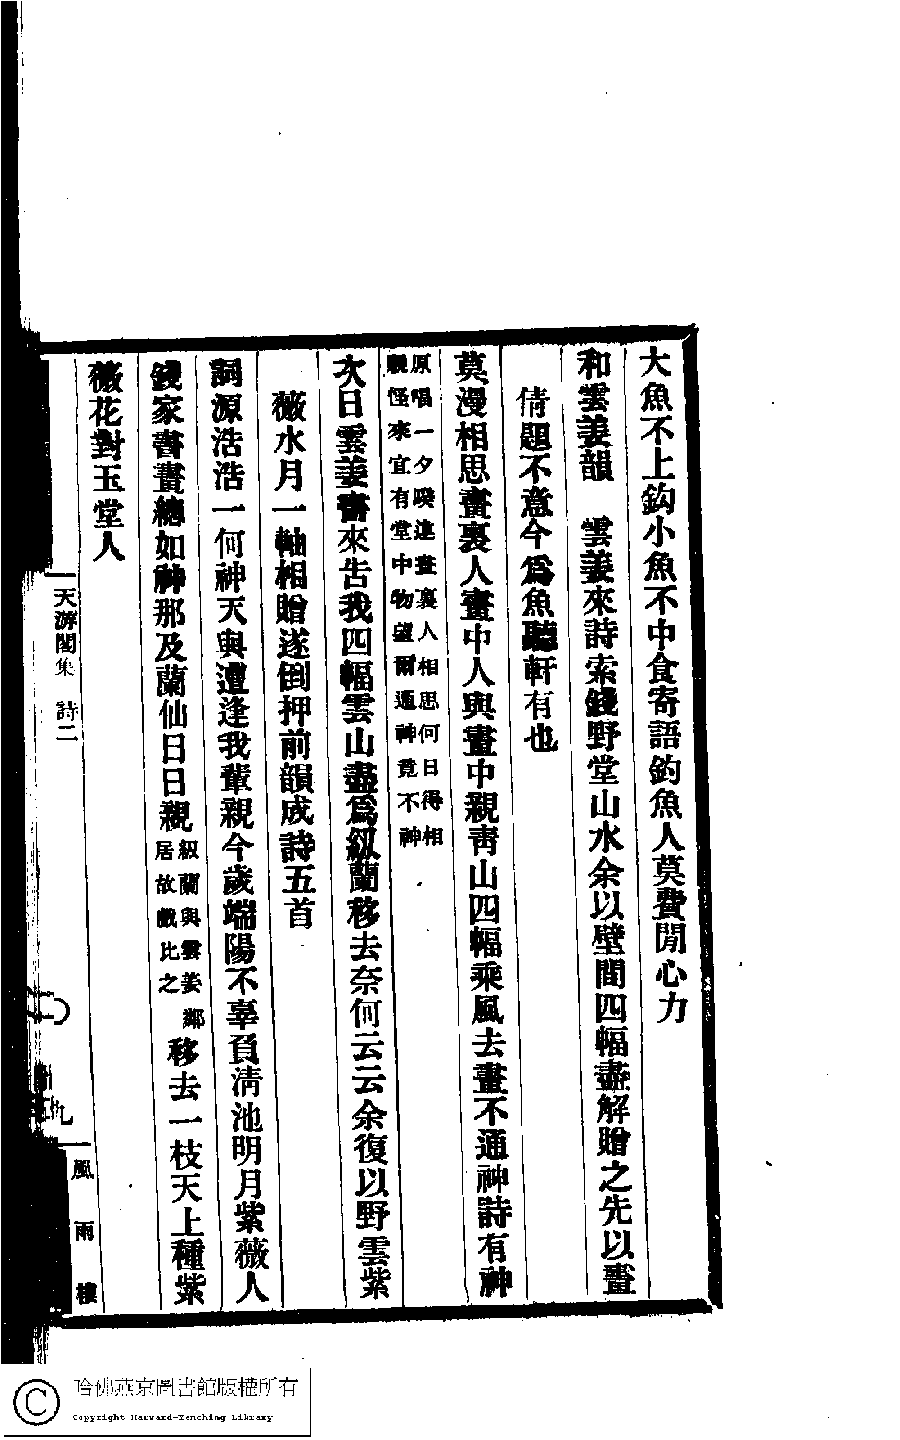 大魚不上鈎小魚不中食寄語釣魚人莫費閒心力
和雲姜韻　雲姜來詩索錢野堂山水余以壁間四幅盡解贈之先以畫
倩題不意今爲魚聽軒有也
莫漫相思畫裏人畫中人與畫中親靑山四幅乘風去畫不通神詩有神
原唱一夕暌違畫裏人相思何日得相
親怪來宜有堂中物望爾通神竟不神
次日雲姜書來吿我四幅雲山盡爲紉蘭移去奈何云云余復以野雲紫
薇水月一軸相贈遂倒押前韻成詩五首
詞源浩浩一何神天與遭逢我輩親今歲端陽不辜負淸池明月紫薇人
錢家書畫總如神那及蘭仙日日親紉蘭與雲姜鄰居故戲比之移去一枝天上種紫
薇花對玉堂人
天游閣集　詩二
風雨樓
哈佛燕京圖書館版權所有
Copyright Harvard-Yenching Library